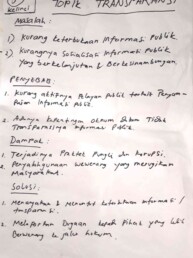 TOPIK TRANSPARANSI
Masalah:
1) Kurang keterbukaan Informasi Publik
2) Kurangnya Sosialisasi Informasi Publik
yang berkelanjutan & Berkesinambungan.
PENYEBAB:
1. Kurang aktifnya Pelayan Publik terkait Penyam-
paian Informasi Publik.
2. Adanya kepentingan oknum dalam Tidak
Transparansi Informasi Publik.
Dampak:
1. Terjadinya Praktek Pungli dan korupsi.
2. Penyalahgunaan wewenang yang merugikan
Masyarakat.
Solusi:
1. Menyatakan & Menuntut keterbukaan informasi /
transparansi.
2. Melaporkan Dugaan kepada Pihak yang
Berwenang jalur hukum.